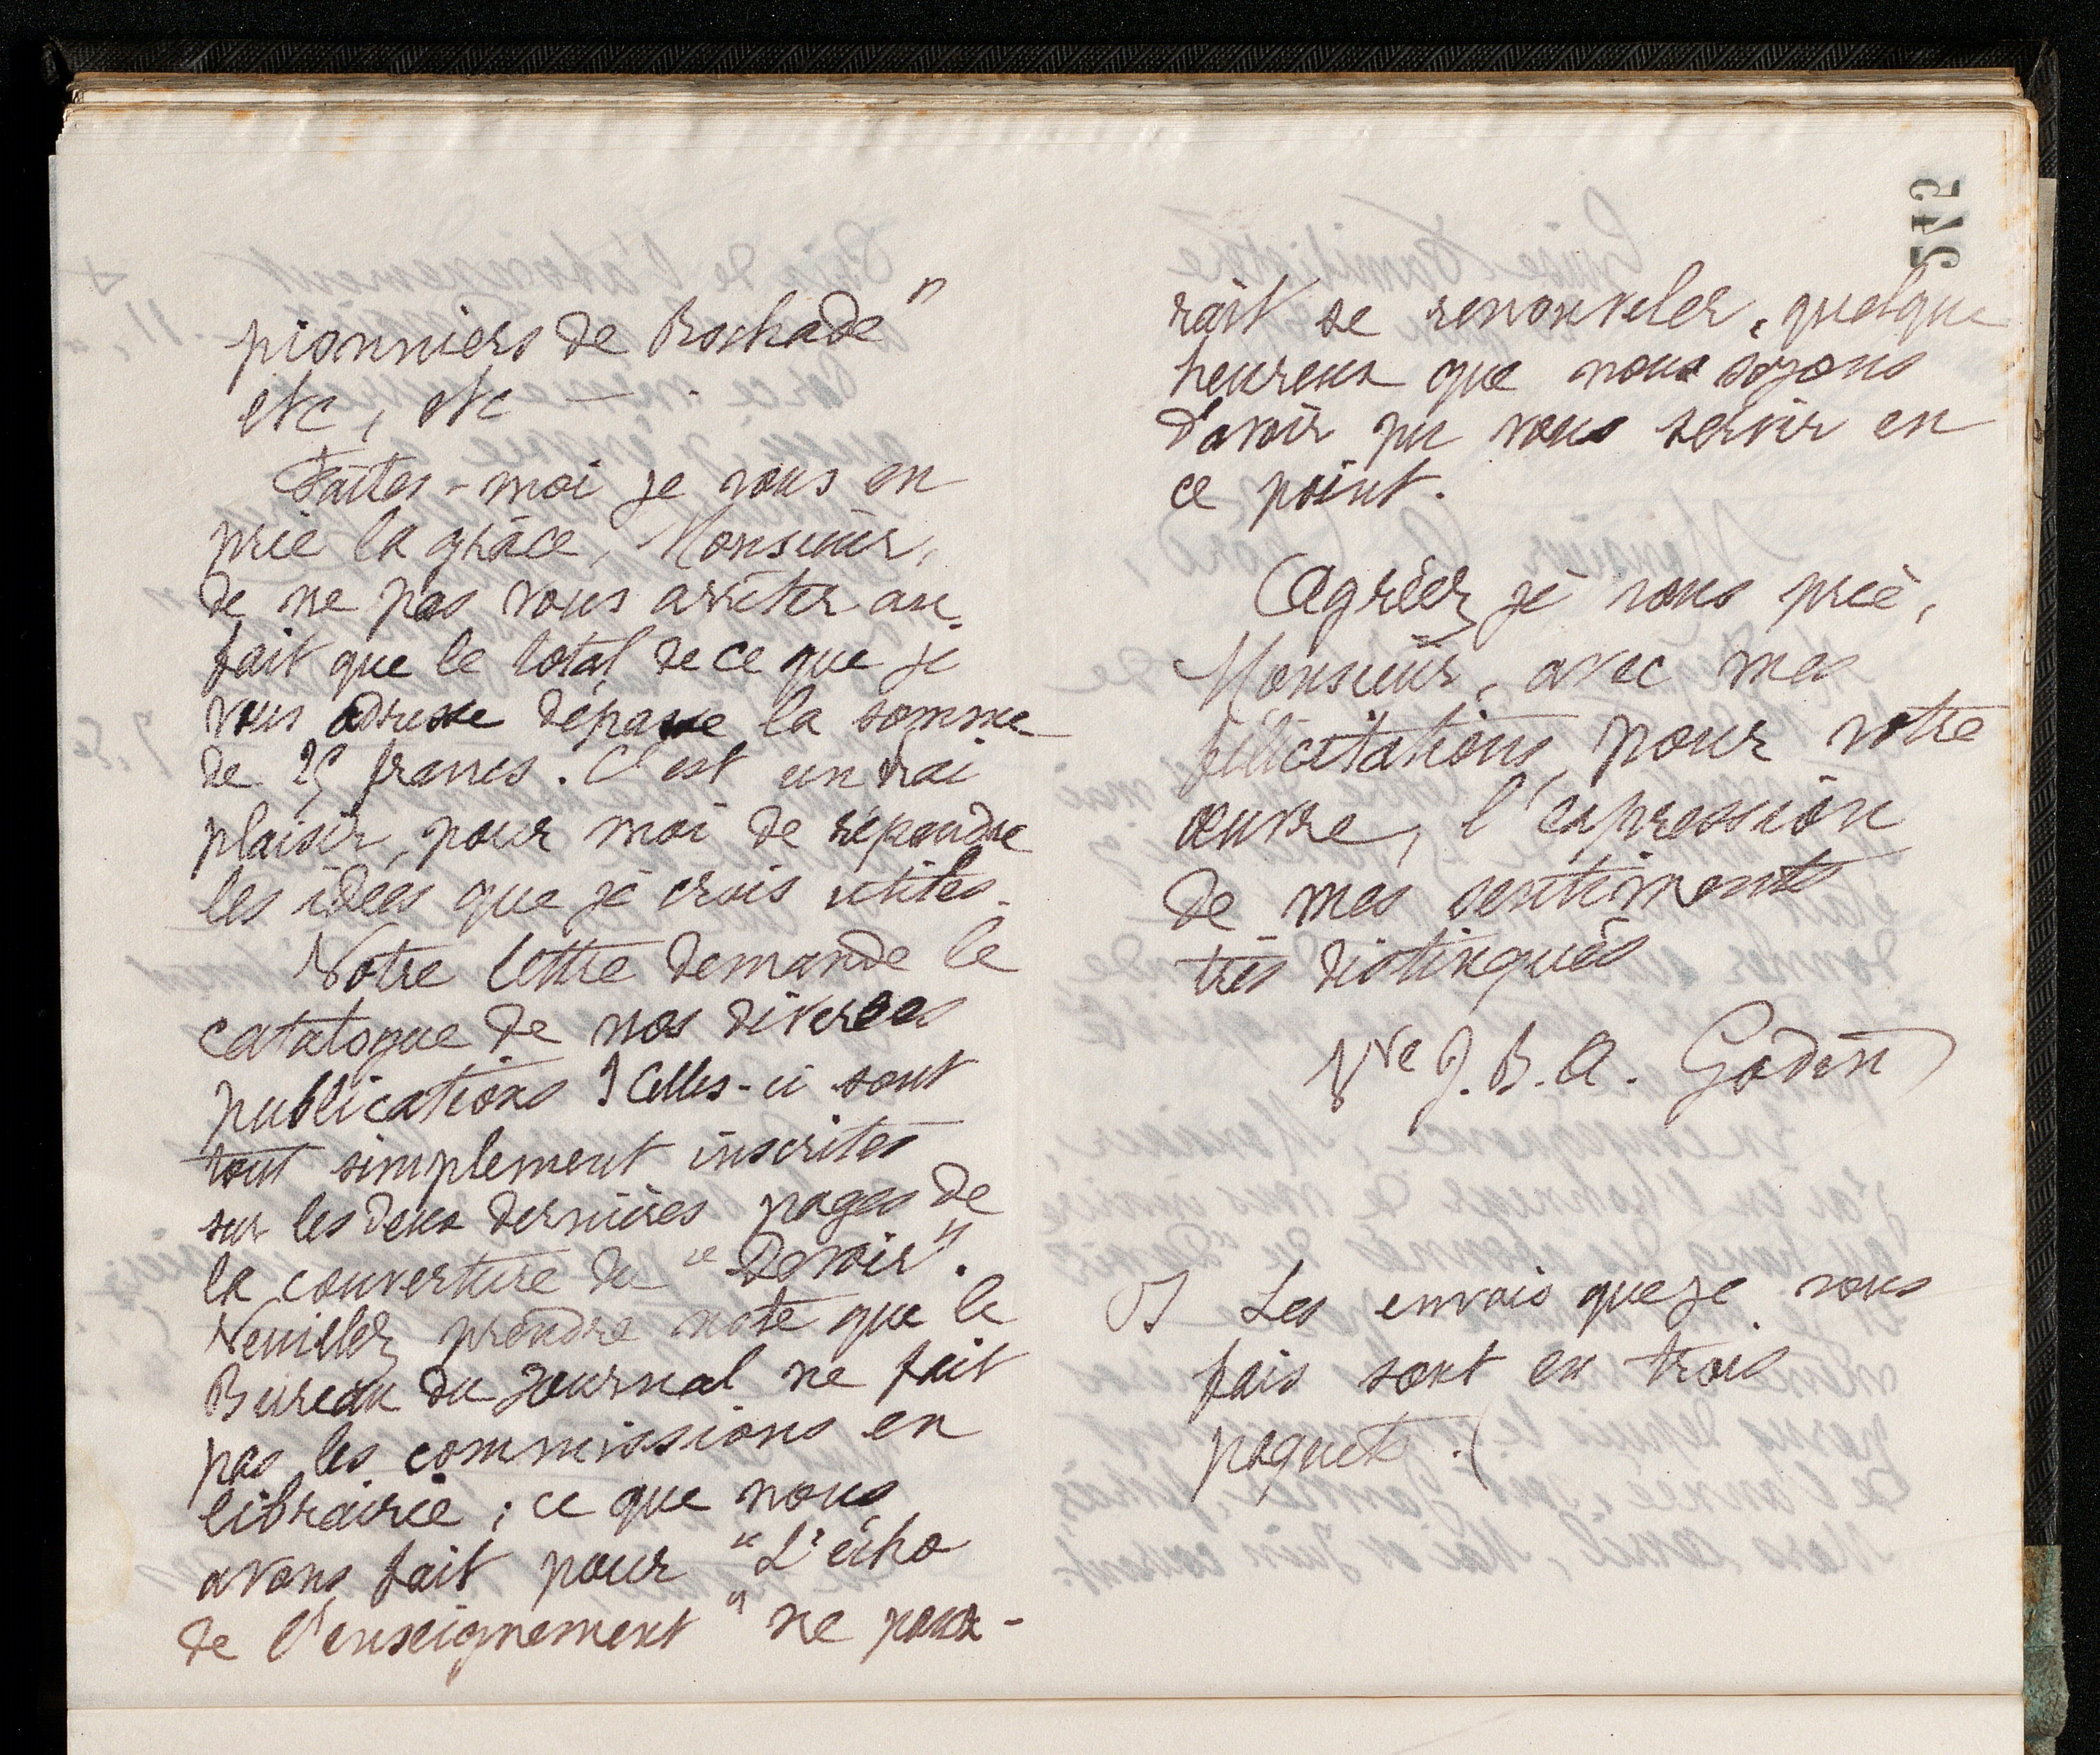 pionniers de Rochade"
etc, etc —.
Faites-moi je vous en
prie la grâce, Monsieur,
de ne pas vous arrêter au
fait que le total de ce que je
vous adresse dépasse la somme
de 25 francs. C'est un vrai
plaisir, pour moi de répandre
les idées que je crois utiles.
Votre lettre demande le
catalogue de nos diverses
publications? Celles-ci sont
tout simplement inscrites
sur les deux dernières pages de
la couverture du "Devoir".
Veuillez prendre note que le
Bureau du Journal ne fait
pas les commissions en
librairie; ce que nous
avons fait pour "L'écho
de l'enseignement" ne pour-
572
rait se renouveler, quelque
heureux que nous soyons
d'avoir pu vous servir en
ce point.
Agréez je vous prie,
Monsieur, avec mes
félicitations pour votre
œuvre, l'expression
de mes sentiments
très distingués
Vve J. B. A. Godin
Les envois que je vous
fais sont en trois
paquets.